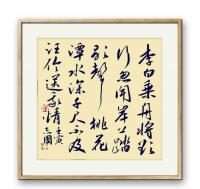 李白乘舟将欲
行忽闻岸上踏
歌聲桃花
潭水深千尺不及
汪伦送我情壬寅